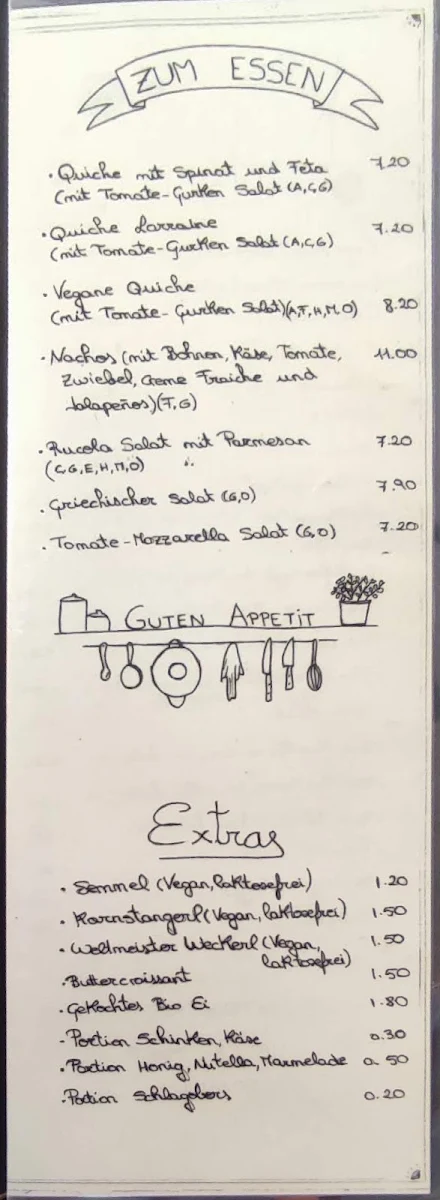 ZUM ESSEN
· Quiche mit Spinat und Feta 7.20
(mit Tomate-Gurken Salat (A,C,G)
· Quiche Lorraine 7.20
(mit Tomate-Gurken Salat (A,C,G)
· Vegane Quiche
(mit Tomate-Gurken Salat)(A,F,H,M,O) 8.20
· Nachos (mit Bohnen, Käse, Tomate, 11.00
Zwiebel, Creme Fraiche und
Jalapeños)(F,G)
· Rucola Salat mit Parmesan 7.20
(C,G,E,H,M,O)
· Griechischer Salat (G,O) 7.90
· Tomate-Mozzarella Salat (G,O) 7.20
GUTEN APPETIT
Extras
· Semmel (Vegan, laktosefrei) 1.20
· Kornstangerl (Vegan, laktosefrei) 1.50
· Weltmeister Weckerl (Vegan, 1.50
laktosefrei)
· Buttercroissant 1.50
· Gekochtes Bio Ei 1.80
- Portion Schinken, Käse 0.30
· Portion Honig, Nutella, Marmelade 0.50
· Portion Schlagobers 0.20